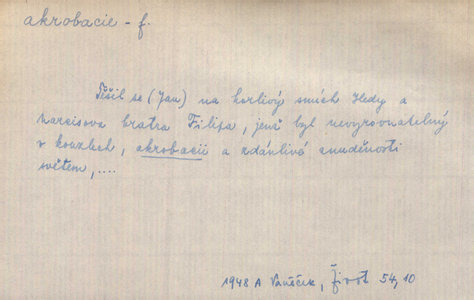 akrobacie - f.
Těšil se (Jan) na horlivý smích Hedy a
narcisova bratra Filipa, jenž byl nevyrovnatelný
v kouzlech, akrobacii a zdánlivé znuděnosti
světem, ....
1948 A Vaněček, Život 54, 10